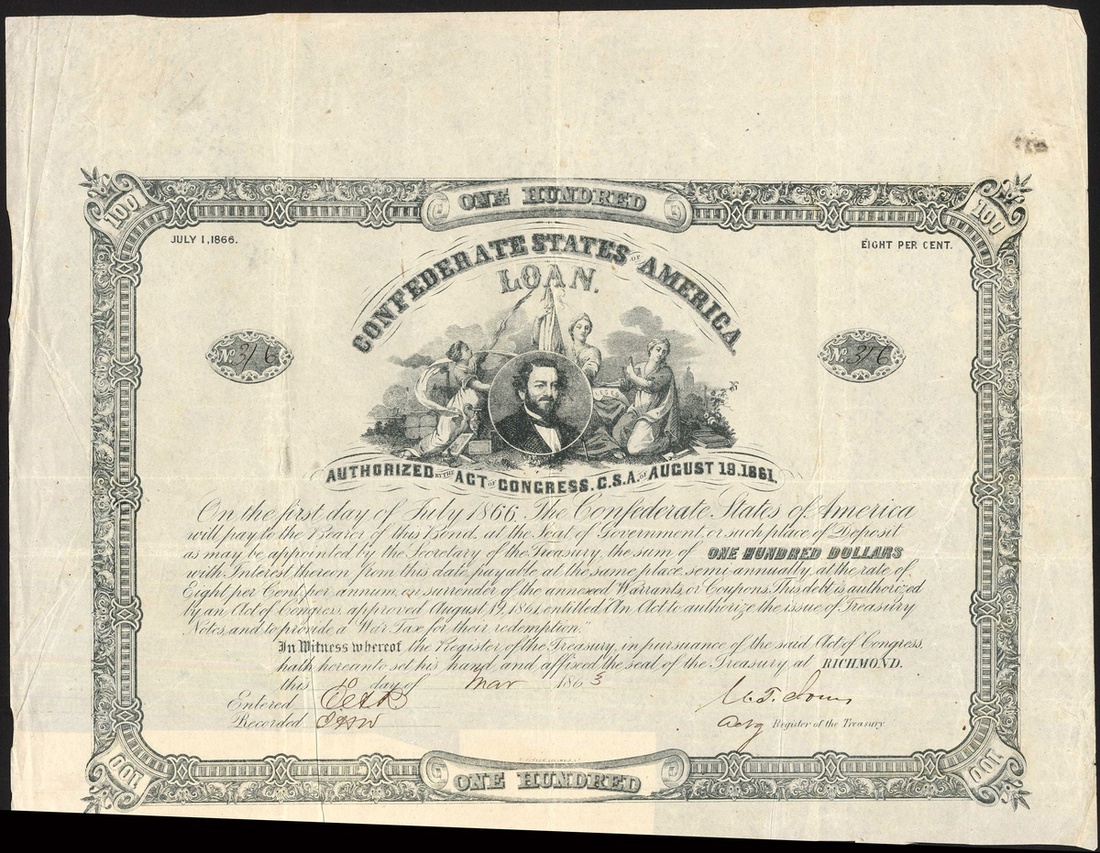 ONE HUNDRED
100
100
JULY 1, 1866.
EIGHT PER CENT.
CONFEDERATE STATES OF AMERICA
LOAN.
No 316
No 316
AUTHORIZED BY THE ACT OF CONGRESS, C.S.A. OF AUGUST 19. 1861.
On the first day of July 1866, The Confederate States of America
will pay to the Bearer of this Bond, at the Seat of Government, or such place of Deposit
as may be appointed by the Secretary of the Treasury, the sum of ONE HUNDRED DOLLARS
with Interest thereon from this date, payable, at the same place, semi-annually, at the rate of
Eight per Cent, per annum, on surrender of the annexed Warrants, or Coupons. This debt is authorized
by an Act of Congress, approved August 19, 1861, entitled "An Act to authorize the issue of Treasury
Notes, and to provide a War Tax for their redemption."
In Witness whereof the Register of the Treasury, in pursuance of the said Act of Congress,
hath hereunto set his hand, and affixed the seal of the Treasury, at RICHMOND.
this 10 day of Mar 1863
Entered
Recorded
Actg Register of the Treasury
100
100
ONE HUNDRED